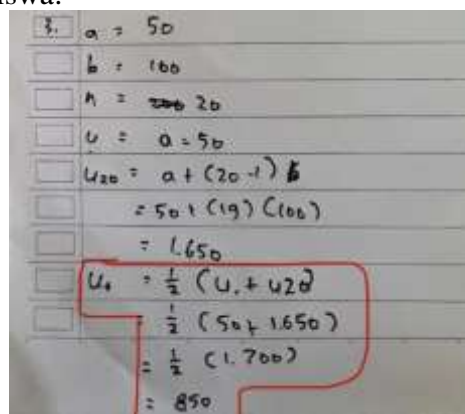 iswa.
3. a = 50
b = 100
n = 20
u = a = 50
U20 = a + (20-1) b
= 50 + (19) (100)
= 1.650
U. = 1/2 (U. + U20)
= 1/2 (50 + 1.650)
= 1/2 (1.700)
= 850